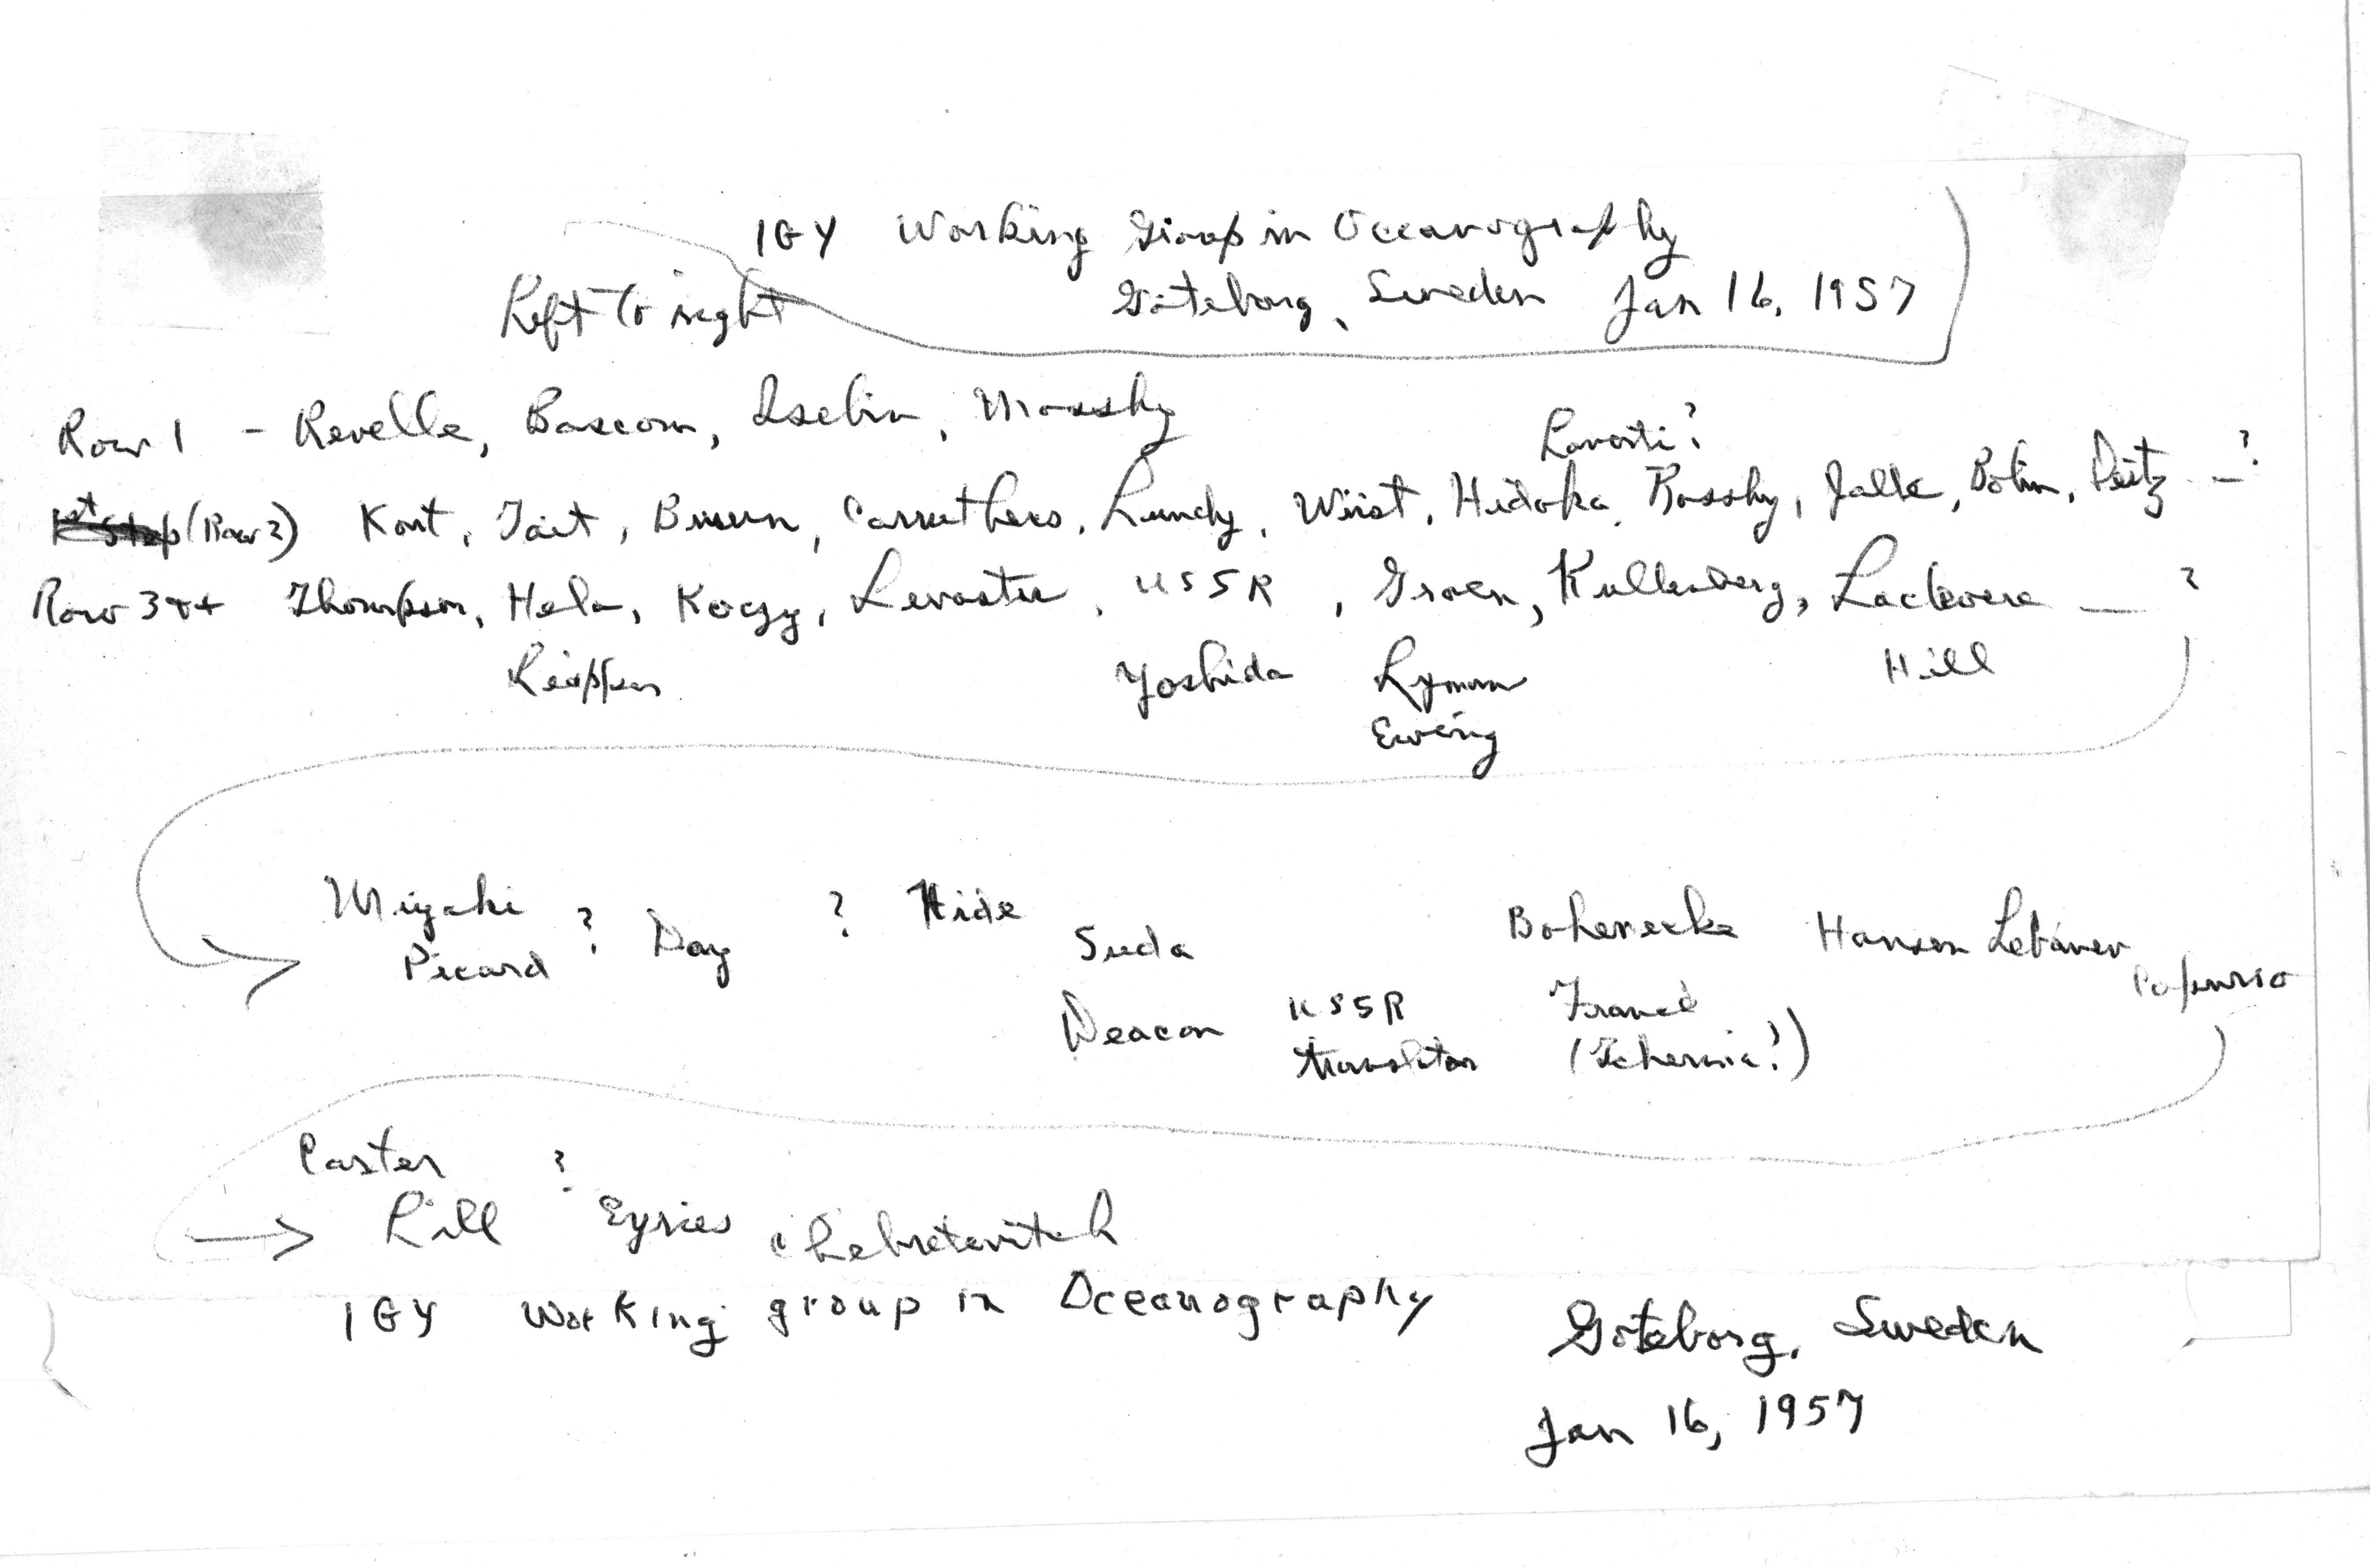 IGY Working Group in Oceanography
Left to right Göteborg, Sweden Jan 16, 1957
Row 1 - Revelle, Bascom, Iselin, Mosby
(Row 2) Kort, Tait, Bruun, Carruthers, Lundy, Wüst, Hidaka, Rossby, Jalle, Bohn, Deitz — ?
Row 3+4 Thompson, Hela, Koczy, Levastu, USSR, Groen, Kullenberg, Lackovere — ?
Yoshida Lyman Hill
Ewing
Miyaki ? Day ? Hide
Picard Suda Bohenecke Hansen
Deacon USSR France
translator
Caster ?
Lill Eyries
IGY Working group in Oceanography
Göteborg, Sweden
Jan 16, 1957